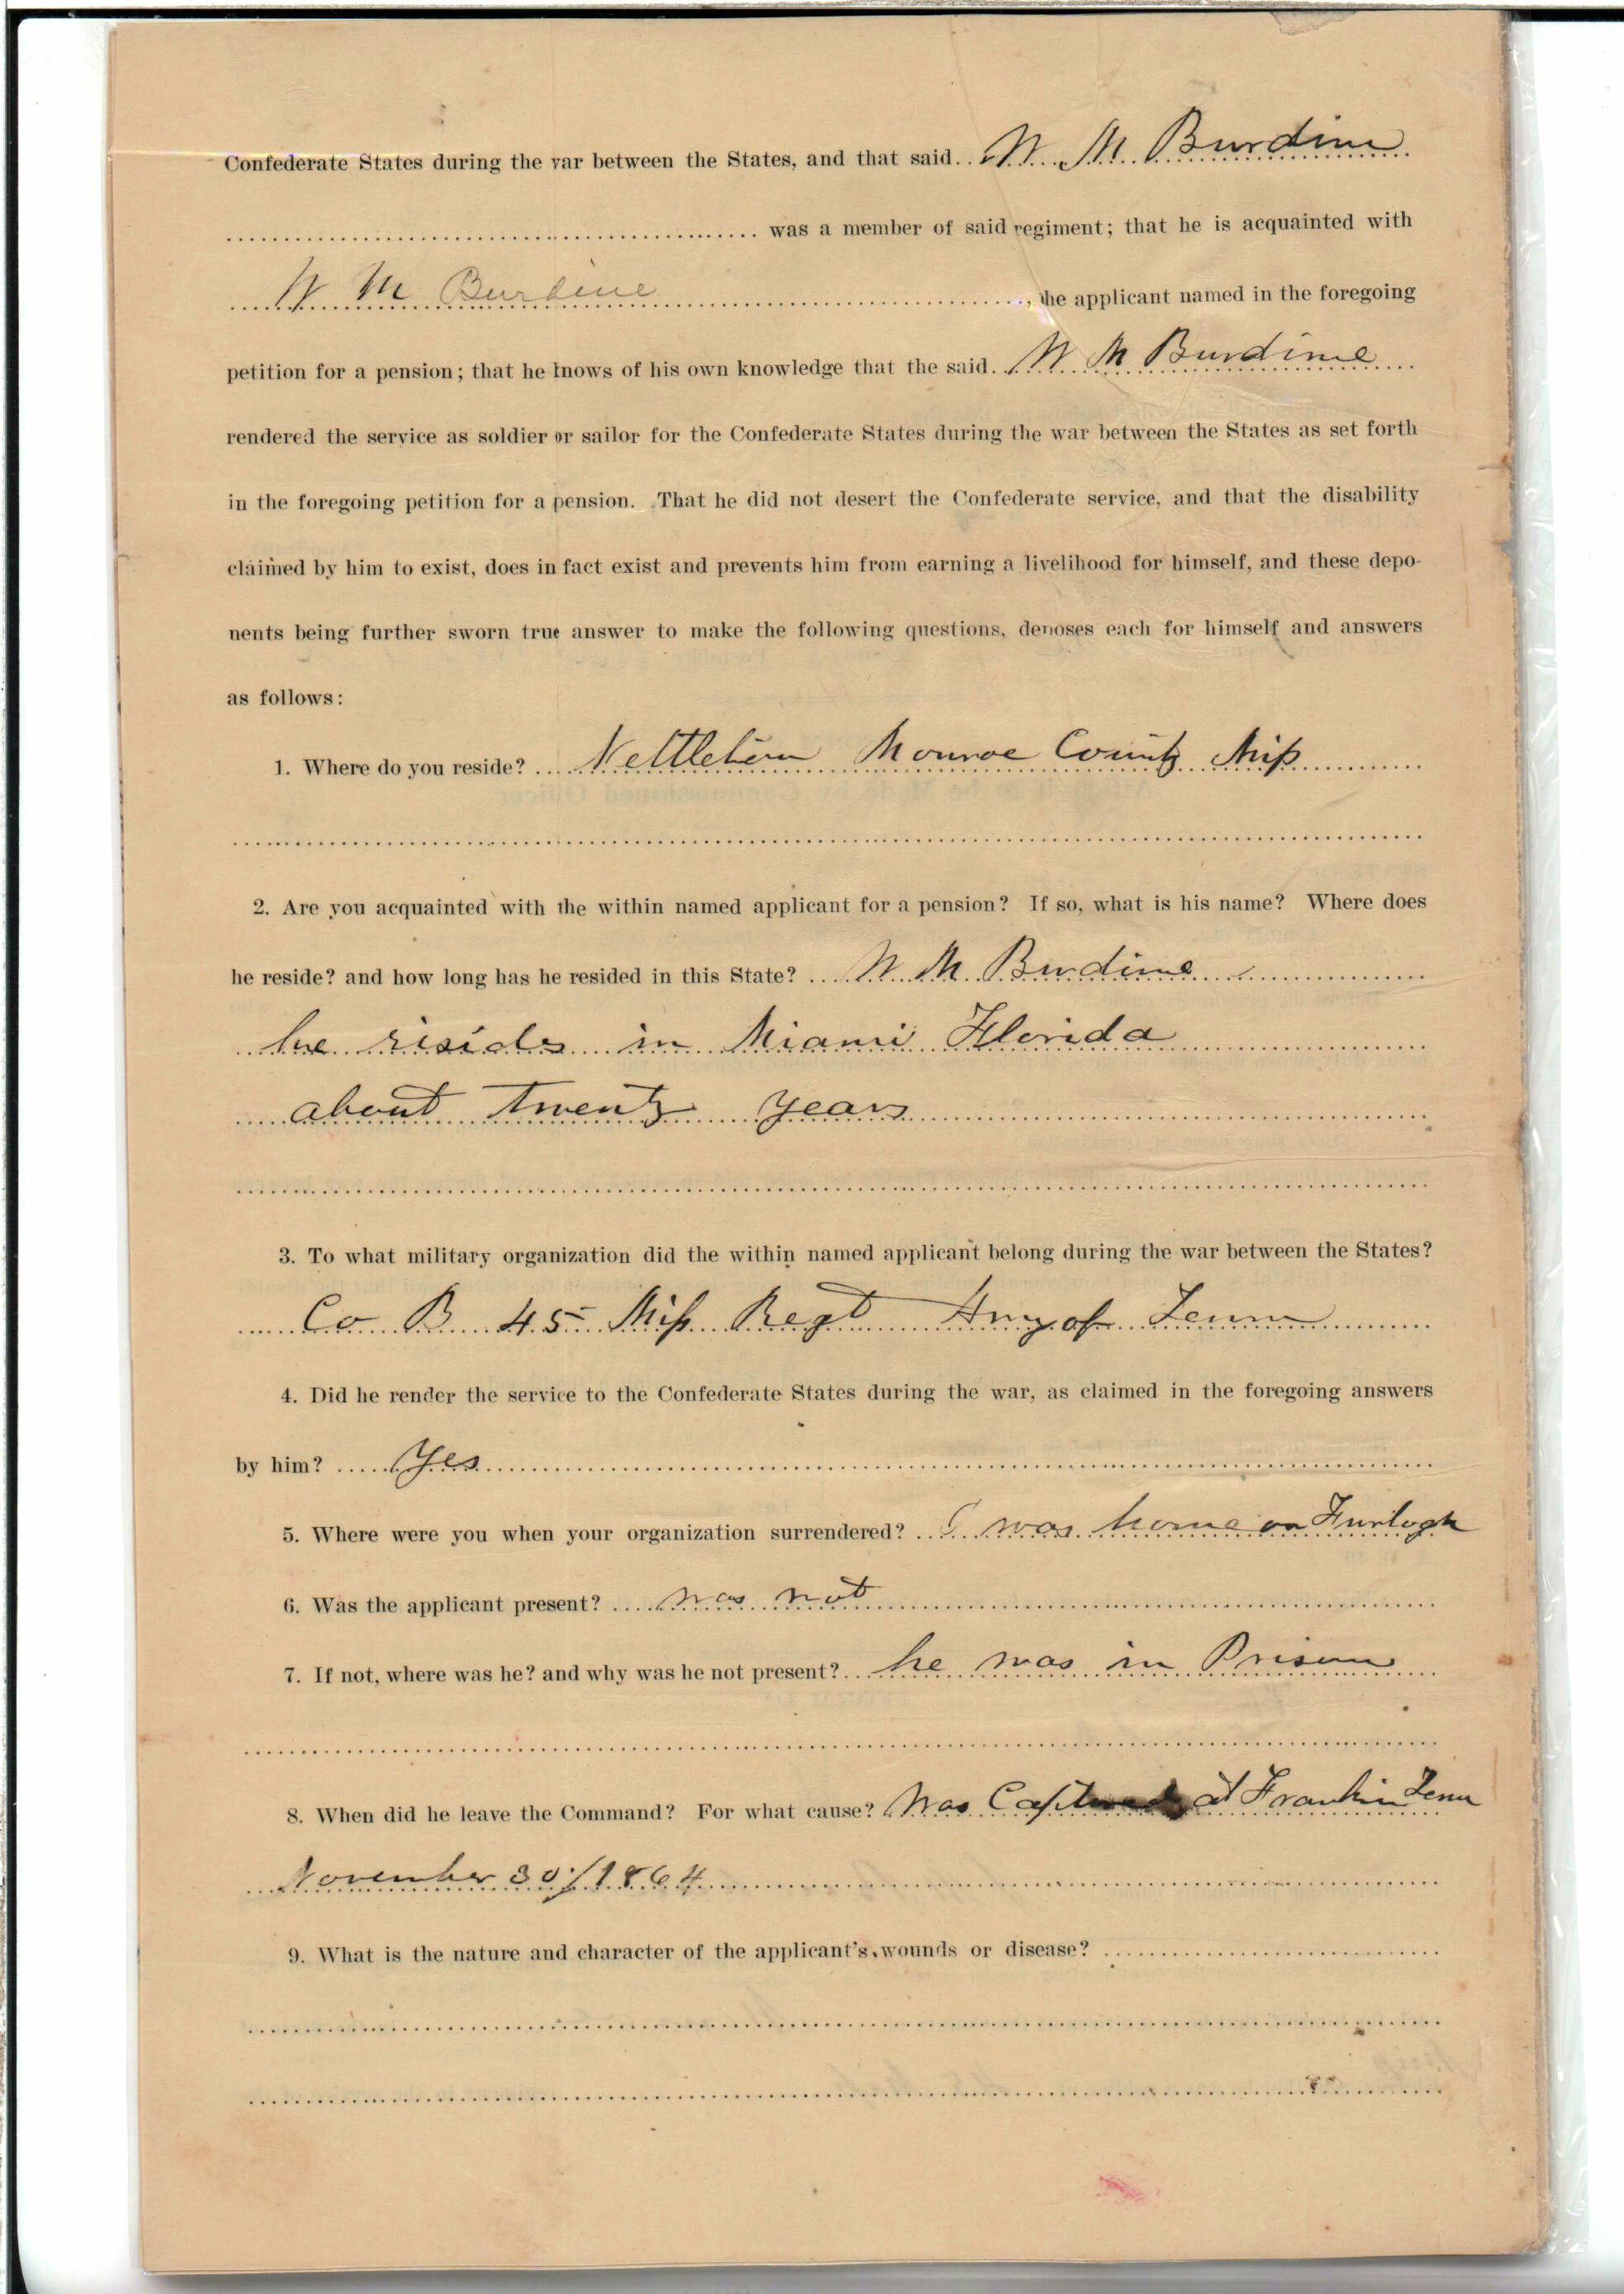 Confederate States during the var between the States, and that said.. W. M. Burdine
was a member of said regiment; that he is acquainted with
W M Burdine, he applicant named in the foregoing
petition for a pension; that he knows of his own knowledge that the said. W M Burdine
rendered the service as soldier or sailor for the Confederate States during the war between the States as set forth
in the foregoing petition for a pension. That he did not desert the Confederate service, and that the disability
claimed by him to exist, does in fact exist and prevents him from earning a livelihood for himself, and these depo-
nents being further sworn true answer to make the following questions, deposes each for himself and answers
as follows:
1. Where do you reside? Nettleton Monroe County Miss
2. Are you acquainted with the within named applicant for a pension? If so, what is his name? Where does
he reside? and how long has he resided in this State? W. M. Burdine
he resids in Miami Florida
about twenty years
3. To what military organization did the within named applicant belong during the war between the States?
Co B 45 Miss Regt Army of Tenn
4. Did he render the service to the Confederate States during the war, as claimed in the foregoing answers
by him? Yes
5. Where were you when your organization surrendered? I was home on Furlogh
6. Was the applicant present? was not
7. If not, where was he? and why was he not present? he was in Prison
8. When did he leave the Command? For what cause? Was Captured at Franklin Tenn
November 30/1864
9. What is the nature and character of the applicant's wounds or disease?